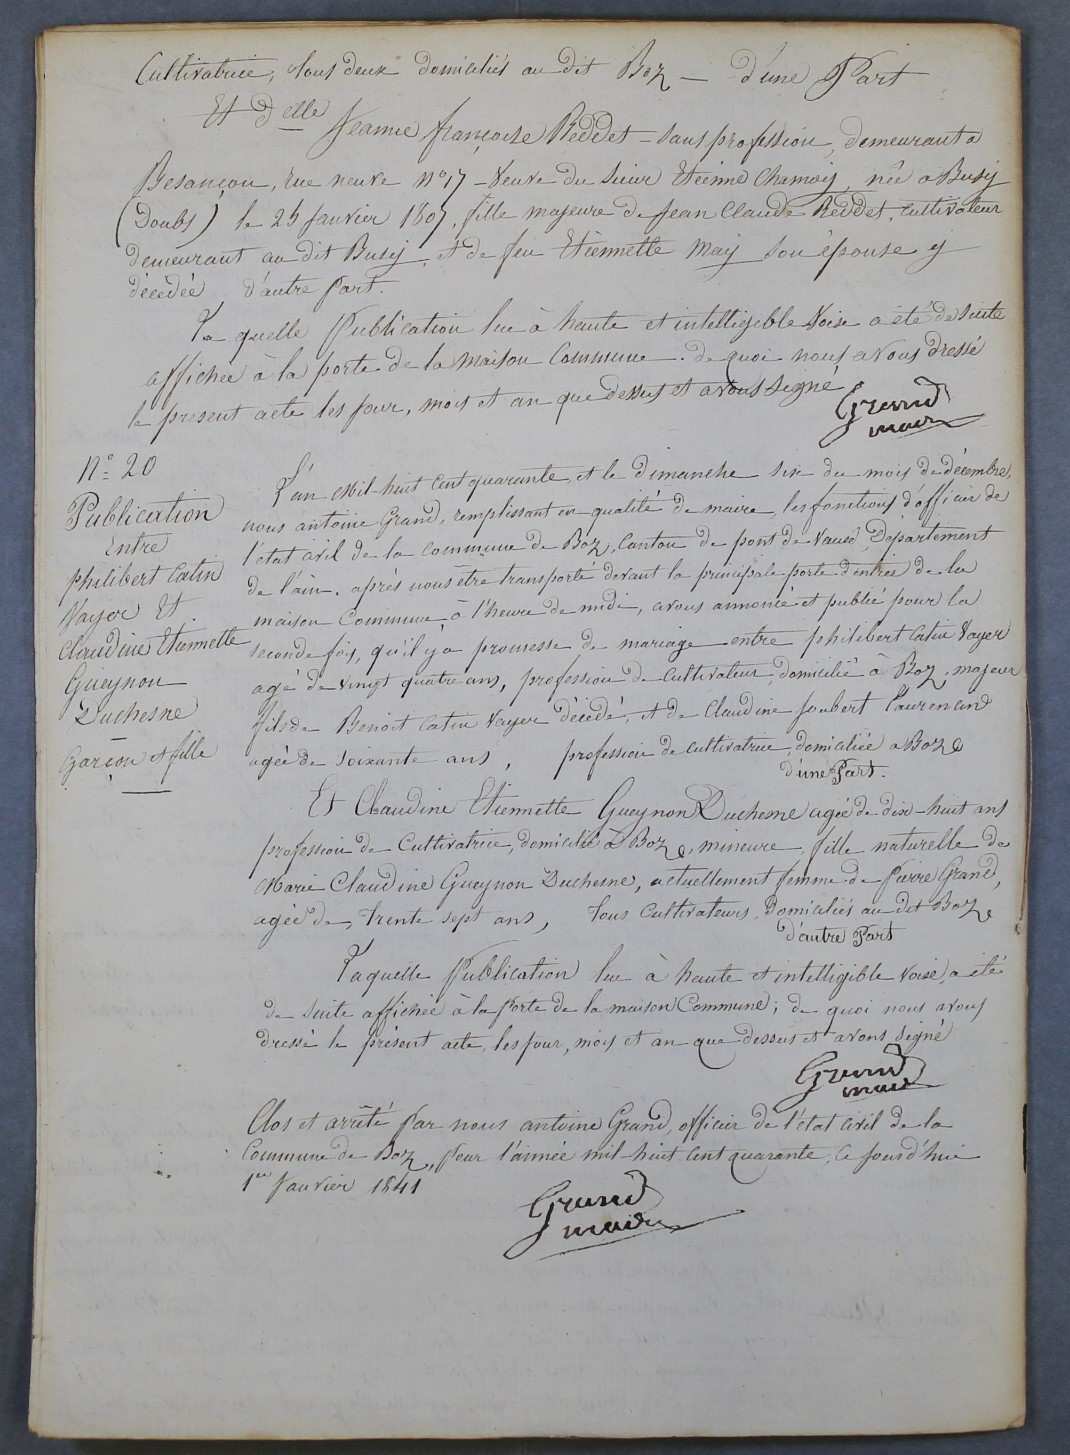 Cultivatrice, tous deux domiciliés au dit Boz — d'une Part
Et Delle Jeanne françoise Reddet — sans profession, demeurant a
Besançon, rue neuve n° 17 — Veuve du Sieur Etienne Chamoy, née a Busy
(Doubs) le 25 Janvier 1807, fille majeure de Jean Claude Reddet, cultivateur
demeurant au dit Busy, et de feu Etiennette May son épouse y
décédée, d'autre part.
Laquelle Publication lue à haute et intelligible Voise a été de suite
affichée à la porte de la maison Commune. de quoi nous avons dressé
le present acte les jour, mois et an que dessus et avons signé
Grand
maire
N° 20
Publication
Entre
philibert Catin
Vayer Et
Claudine Etiennette
Gueynon
Duchesne
Garçon et fille
L'an Mil-huit cent quarante et le dimanche six du mois de décembre,
nous antoine Grand, remplissant en qualité de maire, les fonctions d'officier de
l'état civil de la commune de Boz, Canton de pont de Vaux, Département
de l'ain. après nous être transporté devant la principale porte d'entrée de la
maison Commune à l'heure de midi, avons annoncé et publié pour la
seconde fois, qu'il y a promesse de mariage entre philibert Catin Vayer
agé de vingt quatre ans, profession de Cultivateur, domicilié à Boz, majeur
fils de Benoit Catin Vayer décédé, et de Claudine Joubert Laurencin
agée de soixante ans, profession de cultivatrice, domiciliée a Boz
d'une Part.
Et Claudine Etiennette Gueynon Duchesne agée de dix-huit ans
profession de Cultivatrice, domiciliée à Boz, mineure, fille naturelle de
Marie Claudine Gueynon Duchesne, actuellement femme de Pierre Grand,
agée de trente sept ans, tous Cultivateurs, Domiciliés au dit Boz,
d'autre Part
Laquelle Publication lue à haute et intelligible Voise, a été
de suite affichée à la Porte de la maison Commune; de quoi nous avons
dressé le présent acte, les jour, mois et an que dessus et avons signé
Grand
maire
Clos et arrêté par nous antoine Grand, officier de l'état civil de la
Commune de Boz, pour l'année mil-huit cent quarante, ce jourd'hui
1er Janvier 1841
Grand
maire